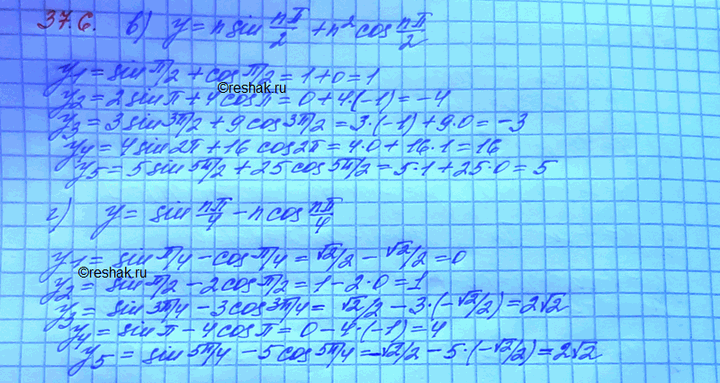 37.6. в) y = n sin nπ/2 + n² cos nπ/2
y1 = sin π/2 + cos π/2 = 1+0 = 1
©reshak.ru
y2 = 2 sin π + 4 cos π = 0 + 4·(-1) = -4
y3 = 3 sin 3π/2 + 9 cos 3π/2 = 3·(-1) + 9·0 = -3
y4 = 4 sin 2π + 16 cos 2π = 4·0 + 16·1 = 16
y5 = 5 sin 5π/2 + 25 cos 5π/2 = 5·1 + 25·0 = 5
г) y = sin nπ/4 - n cos nπ/4
y1 = sin π/4 - cos π/4 = √2/2 - √2/2 = 0
©reshak.ru
y2 = sin π/2 - 2 cos π/2 = 1 - 2·0 = 1
y3 = sin 3π/4 - 3 cos 3π/4 = √2/2 - 3·(-√2/2) = 2√2
y4 = sin π - 4 cos π = 0 - 4·(-1) = 4
y5 = sin 5π/4 - 5 cos 5π/4 = -√2/2 - 5·(-√2/2) = 2√2